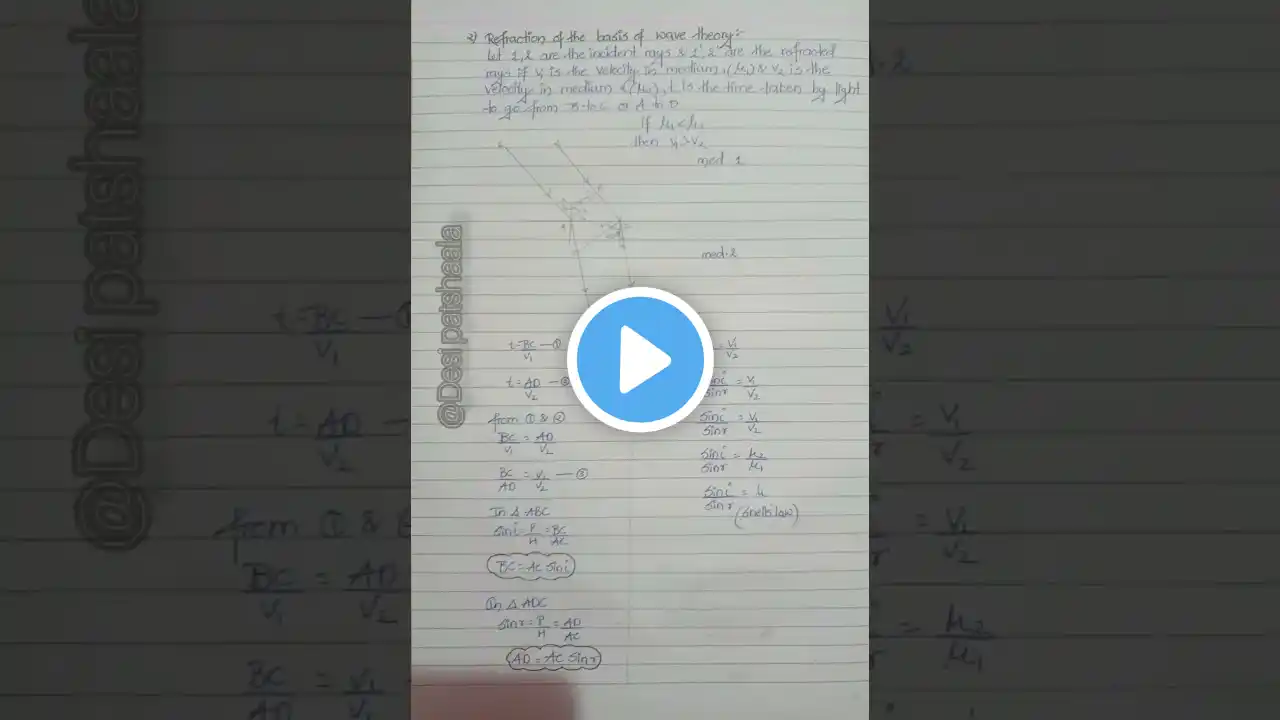 2) Refraction of the basis of wave theory:-
Let 1,2 are the incident rays & 1', 2' are the refracted
rays if v₁ is the velocity in medium 1(μ₁) & v₂ is the
velocity in medium 2(μ₂), t is the time taken by light
to go from B to C or A to D
If μ₁<μ₂
then v₁>v₂
med 1
med. 2
t = BC/V₁ — ①
t = AD/V₂ — ②
from ① & ②
BC/V₁ = AD/V₂
BC/AD = V₁/V₂ — ③
In Δ ABC
sini = P/H = BC/AC
BC = AC sini
In Δ ADC
sinr = P/H = AD/AC
AD = AC sinr
= V₁/V₂
sini/sinr = V₁/V₂
sini/sinr = V₁/V₂
sini/sinr = μ₂/μ₁
sini/sinr = μ
(snells law)
@Desi patshaala